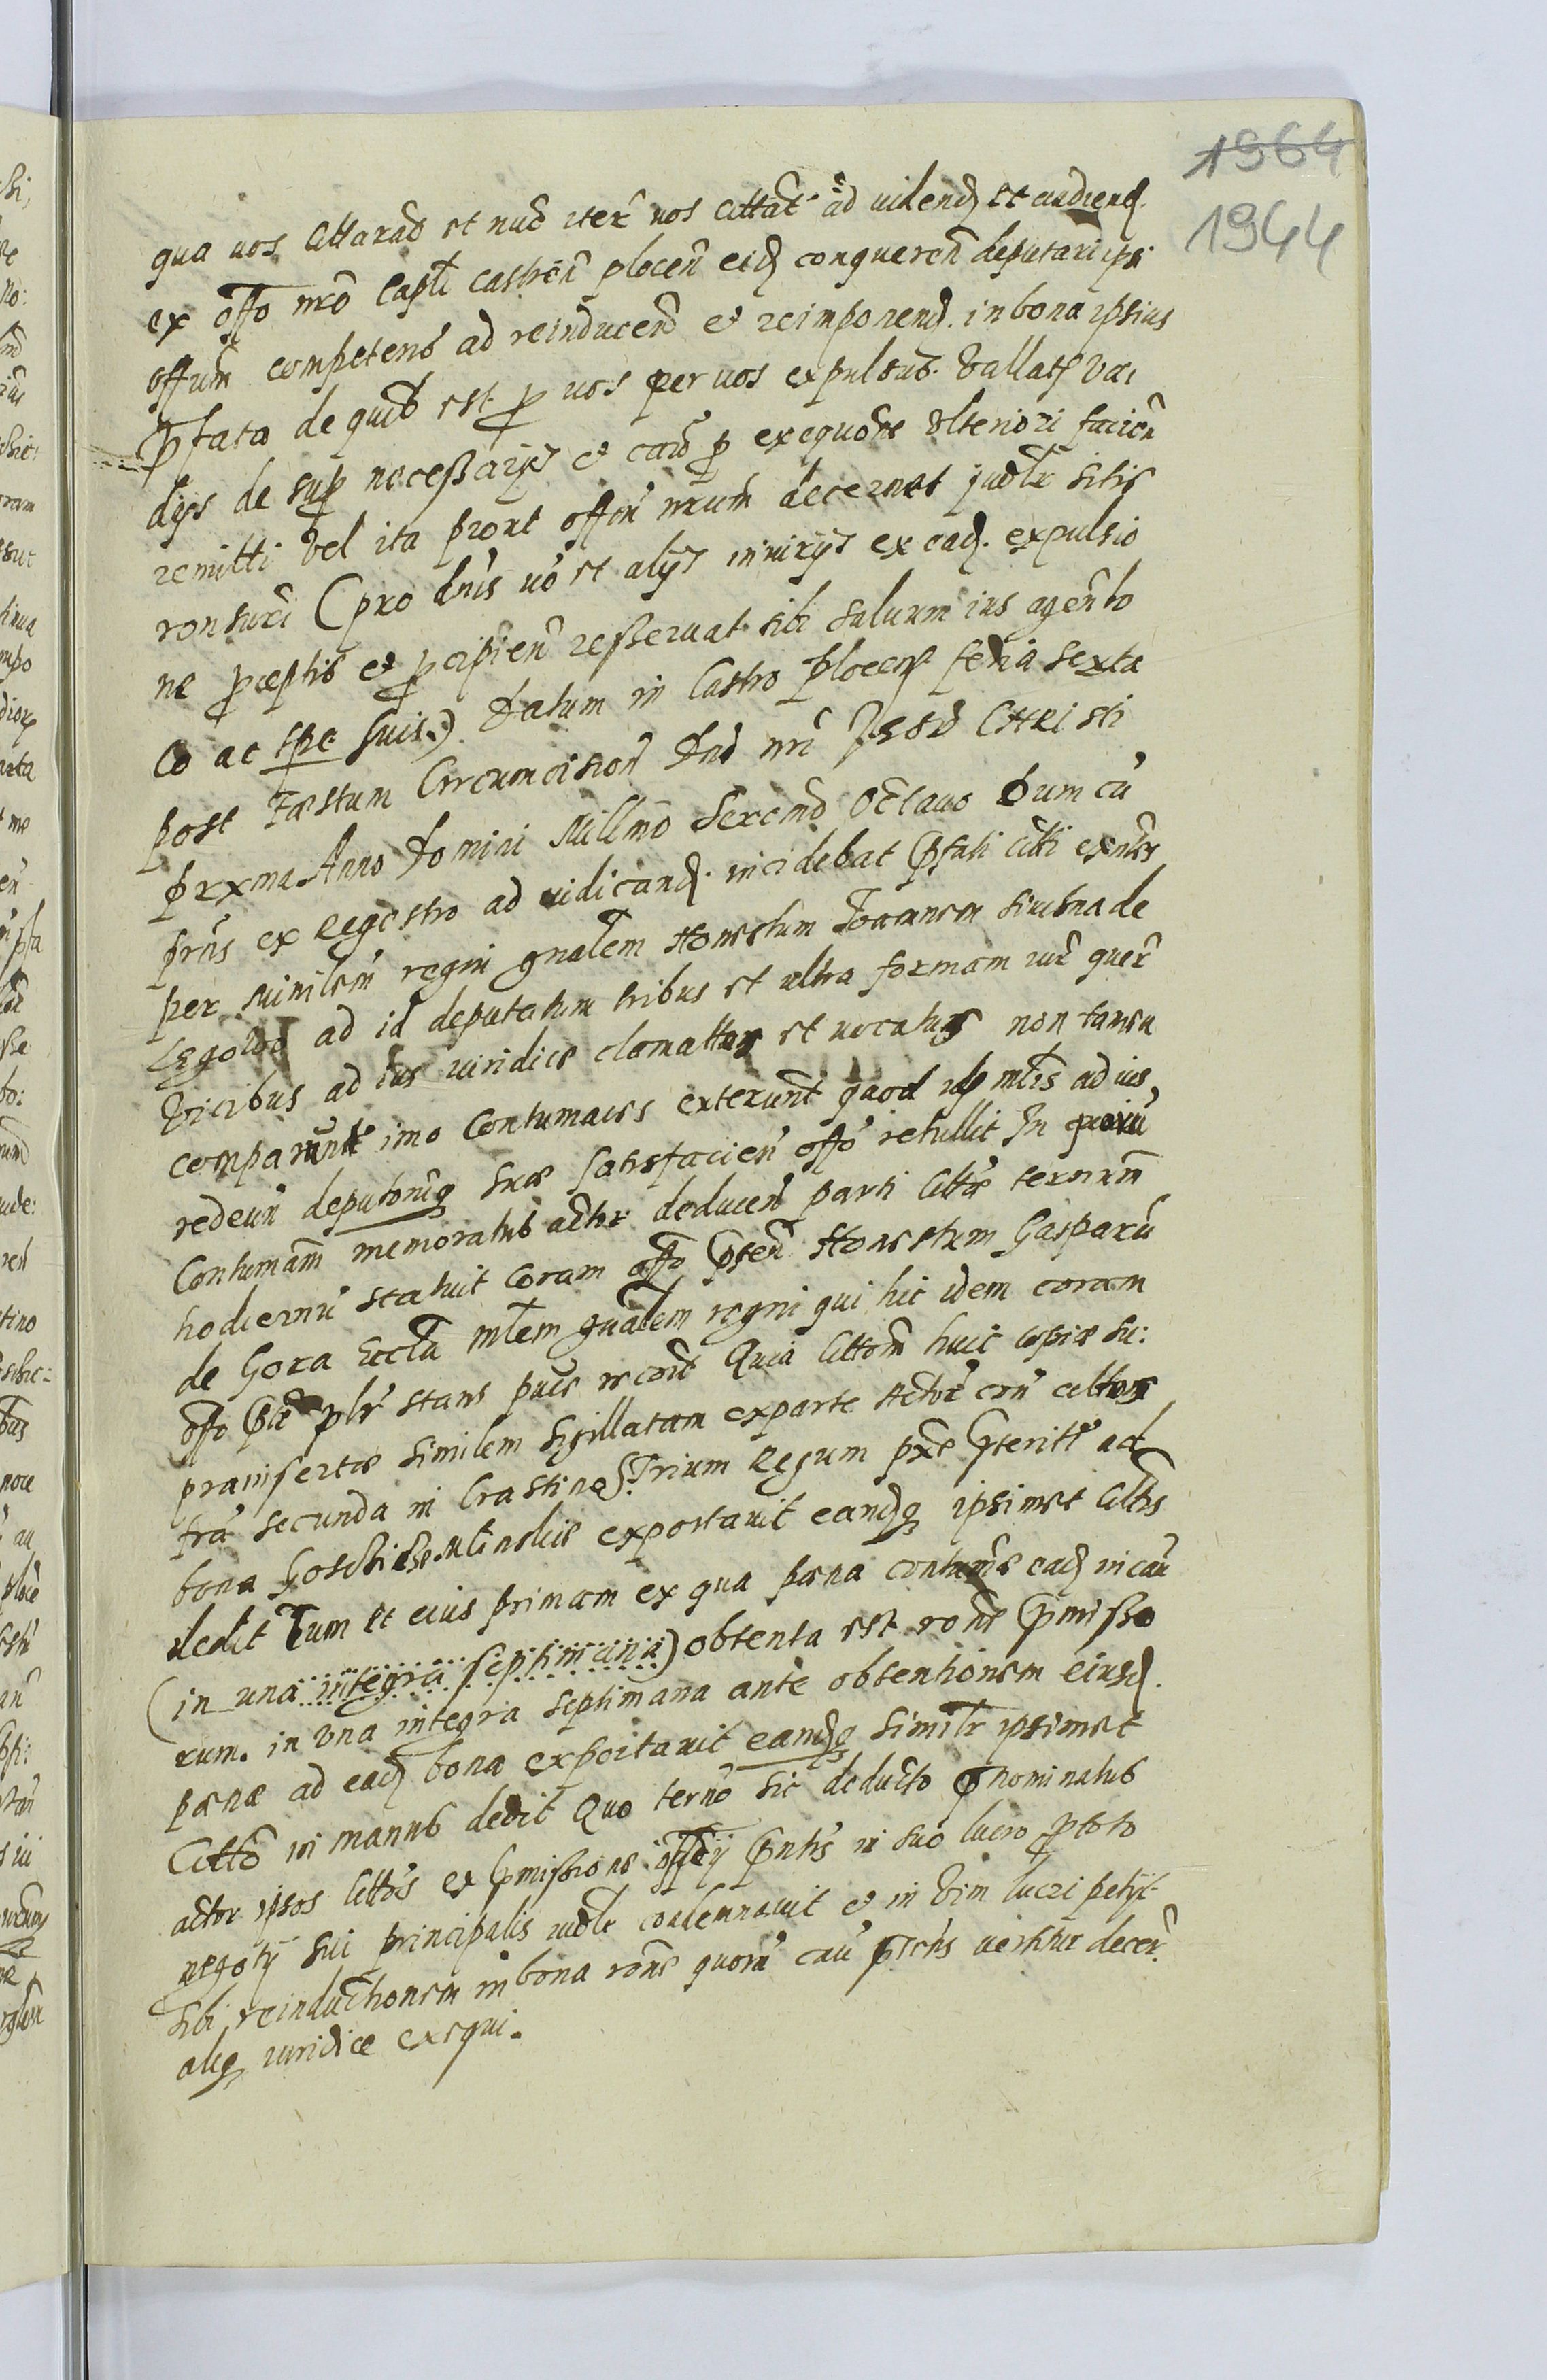 1964
1944
qua vos cittarad et nuc iter vos cittat ad videnđ et audienđ.
ex offo nrõ Capli castren plocen eiđ conqueren deputari ips
offum competens ad reinducenđ et reimponenđ. in bona ipsius
pfata de quib est p vos per vos expulsus. Vallatf Vai
dijs de sup necessarijs et caũ p exequõne Ulteriori facien
remitti Vel ita prout offm nrum decernet judlr sitis
ronsuri (pro dnis vo et alijs iniurijs ex eađ. expulsio
ne pceptis et pcipien resseruat sibi saluum ius agen to
co ac spe suis.) Datum in Castro plocen feria sexta
post Festum Circumcision Dnĩ nrĩ Jesu CHRISti
prxma Anno Domini Millmo Sexcmo Octauo Dum cũ
prñs ex Regestro ad iudicanđ. incidebat pfati citti exntes
per minilem regni gnalem Honestum Joannem
ad id deputatum tribus et ultra formam iur quer
Vicibus ad ius iuridice clamattus et vocatus non tamen
comparunt imo Contumaces exterunt quod idp mlis ad ius
redeun deputonisq suæ satisfacien offo retullit In quorũ
Contumam memoratus actor deducens parti cittæ terminum
hodiernũ statuit coram offo psen Honestum Gasparũ
de Gora Eccla mlem gnalem regni qui hic idem coram
offo psẽ plr stans puce recoũt Quia cittom huic copiæ su:
prainsertæ similem sigillatam ex parte Actor con cittos
fria secunda in Crastino S. Trium Regum pxe pterite ad
bona exportauit eanđq ipsimet cittis
dedit Tum et eius primam ex qua pæna contumæ eađ in cau
(in una integra septimana) obtenta est rone pmisso
rum. in vna integra septimana ante obtentionem eiusđ.
pænæ ad eađ bona exportauit eanđq similr ipsimet
Citto in manus dedit Quo termo sic deducto pnominatus
actor ipsos cittos ex pmissione offcij pntis in suo lucro p toto
negotij sui principalis iudlr condemnauit et in Vim lucri petijt
sibi reinductionem in bona rone quorũ cau pns vertitur decer
aliq iuridice exequi.